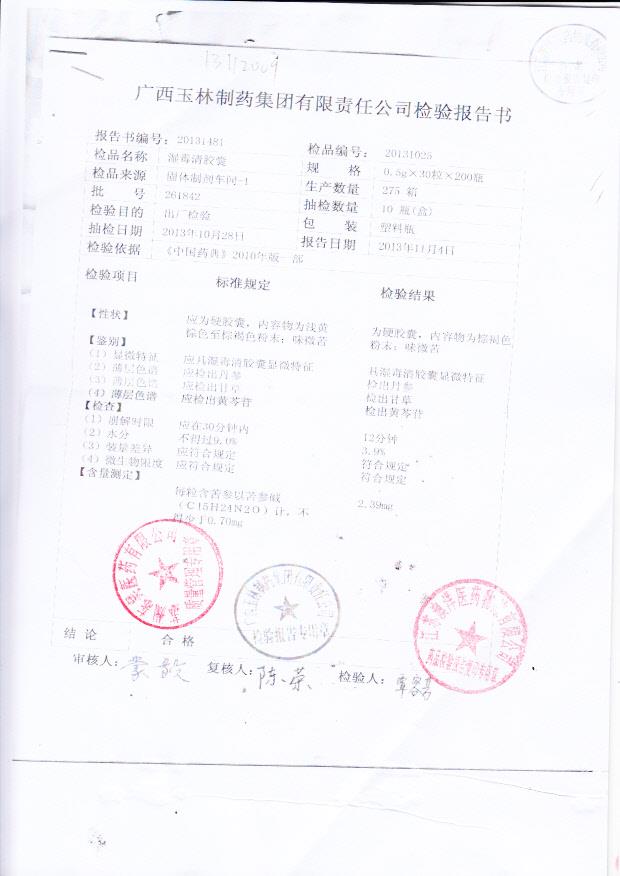 13112009
广西玉林制药集团有限责任公司检验报告书
报告书编号：20131481 检品编号：20131025
检品名称 湿毒清胶囊 规 格 0.5g×30粒×200瓶
检品来源 固体制剂车间-1 生产数量 275 箱
批 号 261842 抽检数量 10 瓶(盒)
检验目的 出厂检验 包 装 塑料瓶
抽检日期 2013年10月28日 报告日期 2013年11月4日
检验依据 《中国药典》2010年版一部
检验项目 标准规定 检验结果
【性状】 应为硬胶囊，内容物为浅黄 为硬胶囊，内容物为棕褐色
棕色至棕褐色粉末；味微苦 粉末；味微苦
【鉴别】
(1) 显微特征 应具湿毒清胶囊显微特征 具湿毒清胶囊显微特征
(2) 薄层色谱 应检出丹参 检出丹参
(3) 薄层色谱 应检出甘草 检出甘草
(4) 薄层色谱 应检出黄芩苷 检出黄芩苷
【检查】
(1) 崩解时限 应在30分钟内 12分钟
(2) 水分 不得过9.0% 3.9%
(3) 装量差异 应符合规定 符合规定
(4) 微生物限度 应符合规定 符合规定
【含量测定】
每粒含苦参以苦参碱 2.39mg
（C15H24N2O）计，不
得少于0.70mg
医药有限公司
广西玉林制药集团有限责任公司
结 论 合 格
审核人： 复核人：陈荣 检验人：